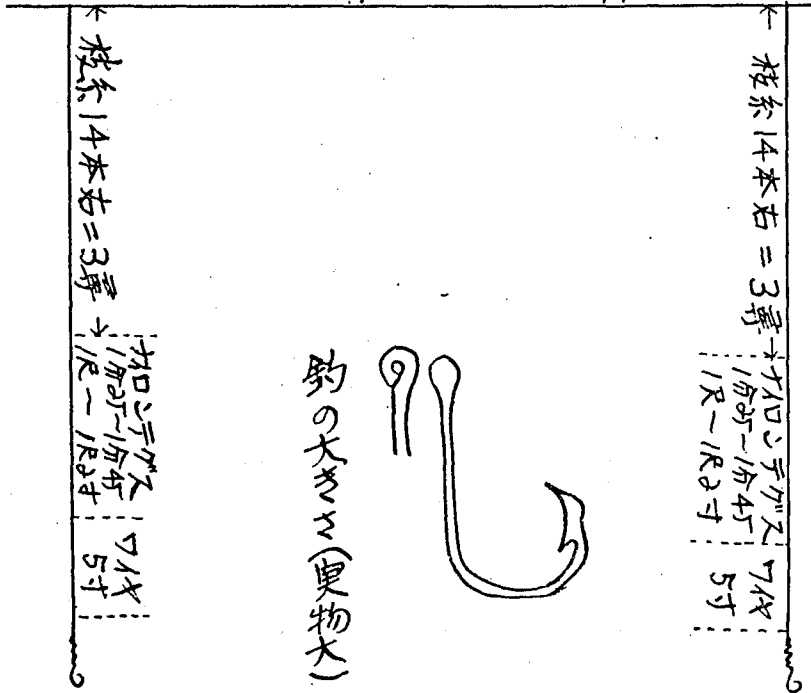 ← 枝糸14本右=3尋→
ナイロンテグス
1分2厘~1分4厘
1尺~1尺2寸
ワイヤ
5寸
釣の大きさ(実物大)
← 枝糸14本右=3尋→
ナイロンテグス
1分2厘~1分4厘
1尺~1尺2寸
ワイヤ
5寸